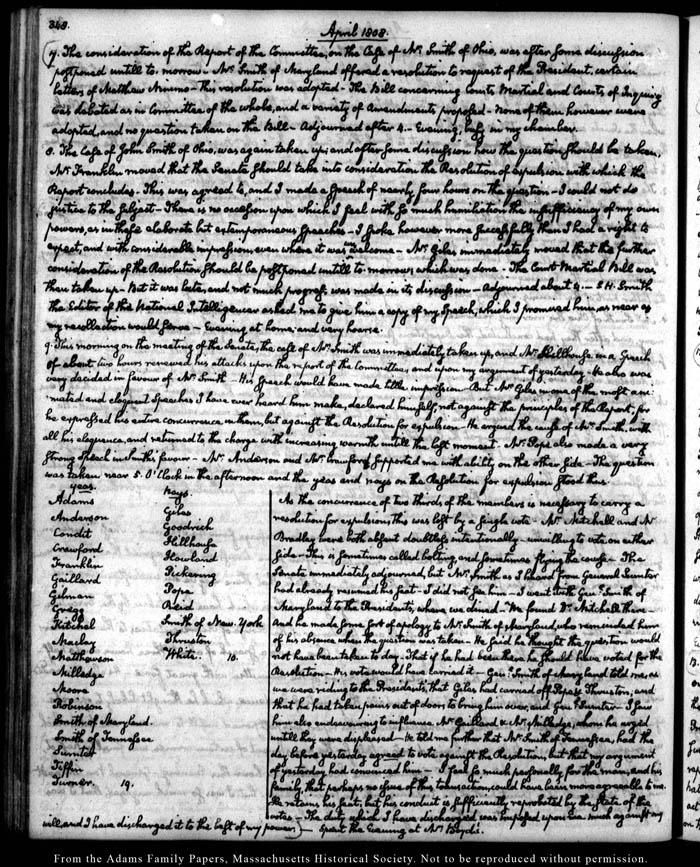 348.
April 1808.
7. The consideration of the Report of the Committee, on the Case of Mr Smith of Ohio, was after some discussion
postponed untill to-morrow. Mr Smith of Maryland offered a resolution to request of the President, certain
letters of Matthew Nimmo - This resolution was adopted - The Bill concerning Courts Martial and Courts of Inquiry
was debated as in Committee of the whole, and a variety of Amendments proposed - None of them however were
adopted, and no question taken on the Bill - Adjourned after 4. - Evening, busy in my chamber.
8. The Case of John Smith of Ohio, was again taken up, and after some discussion how the question should be taken,
Mr Franklin moved that the Senate should take into consideration the Resolution of expulsion with which the
Report concludes. This was agreed to, and I made a Speech of nearly four hours on the question - I could not do
justice to the subject - There is no occasion upon which I feel with so much humiliation the insufficiency of my own
powers, as in these elaborate but extemporaneous speeches - I spoke however more successfully than I had a right to
expect, and with considerable impression even where it was welcome - Mr Giles immediately moved that the further
consideration of the Resolution should be postponed untill to morrow, which was done - The Court Martial Bill was
then taken up - But it was late, and not much progress was made in its discussion - Adjourned about 4 - S. H. Smith
the Editor of the National Intelligencer asked me to give him a copy of my Speech, which I promised him, as near as
my recollection would serve - Evening at home, and very hoarse.
9. This morning on the meeting of the Senate, the case of Mr Smith was immediately taken up, and Mr Hillhouse in a Speech
of about two hours renewed his attacks upon the report of the Committee, and upon my argument of yesterday - He also was
very decided in favour of Mr Smith - His Speech would have made little impression - But Mr Giles in one of the most ani-
mated and eloquent Speeches I have ever heard him make, declared himself, not against the principles of the Report, for
he expressed his entire concurrence in them, but against the Resolution for expulsion. He argued the cause of Mr Smith, with
all his eloquence, and returned to the charge with increasing warmth untill the last moment. Mr Pope also made a very
strong speech in Smith's favour - Mr Anderson and Mr Crawford supported me with ability on the other side - The question
was taken near 5. O'Clock in the afternoon and the yeas and nays on the Resolution for expulsion stood thus.
yeas. Nays.
Adams Giles
Anderson Goodrich
Condit Hillhouse
Crawford Howland
Franklin Pickering
Gaillard Pope
Gilman Reid
Gregg Smith of New-York
Kitchel Thruston
Maclay White. 10.
Matthewson
Milledge
Moore
Robinson
Smith of Maryland.
Smith of Tennessee
Sumter
Tiffin
Turner. 19.
As the concurrence of two thirds of the members is necessary to carry a
resolution for expulsion, this was lost by a single vote - Mr Mitchell and Mr
Bradley were both absent doubtless intentionally - unwilling to vote on either
side - This is sometimes called bolting, and sometimes flying the course - The
Senate immediately adjourned, but Mr Smith as I heard from General Sumter
had already resumed his seat - I did not see him - I went with Genl Smith of
Maryland to the Presidents, where we dined - We found Dr Mitchell there -
And he made some sort of apology to Mr Smith of Maryland, who reminded him
of his absence when the question was taken - He said he thought the question would
not have been taken to day - That if he had been there he should have voted for the
Resolution - His vote would have carried it - Genl Smith of Maryland told me, as
we were riding to the Presidents, that Giles had carried off Pope & Thruston, and
that he had taken pains out of doors to bring him over, and Genl Sumter - I saw
him also endeavouring to influence Mr Gaillard & Mr Milledge, whom he urged
untill they were displeased - He told me further that Mr Smith of Tennessee, had the
day before yesterday agreed to vote against the Resolution, but that my argument
of yesterday had convinced him - I feel so much personally for the man, and his
family, that perhaps no issue of this transaction, could have been more agreeable to me.
He retains his seat; but his conduct is sufficiently reprobated by the state of the
votes - The duty which I have discharged was imposed upon me much against my
will, and I have discharged it to the best of my power) - Spent the Evening at Mr Boyd's.
From the Adams Family Papers, Massachusetts Historical Society. Not to be reproduced without permission.